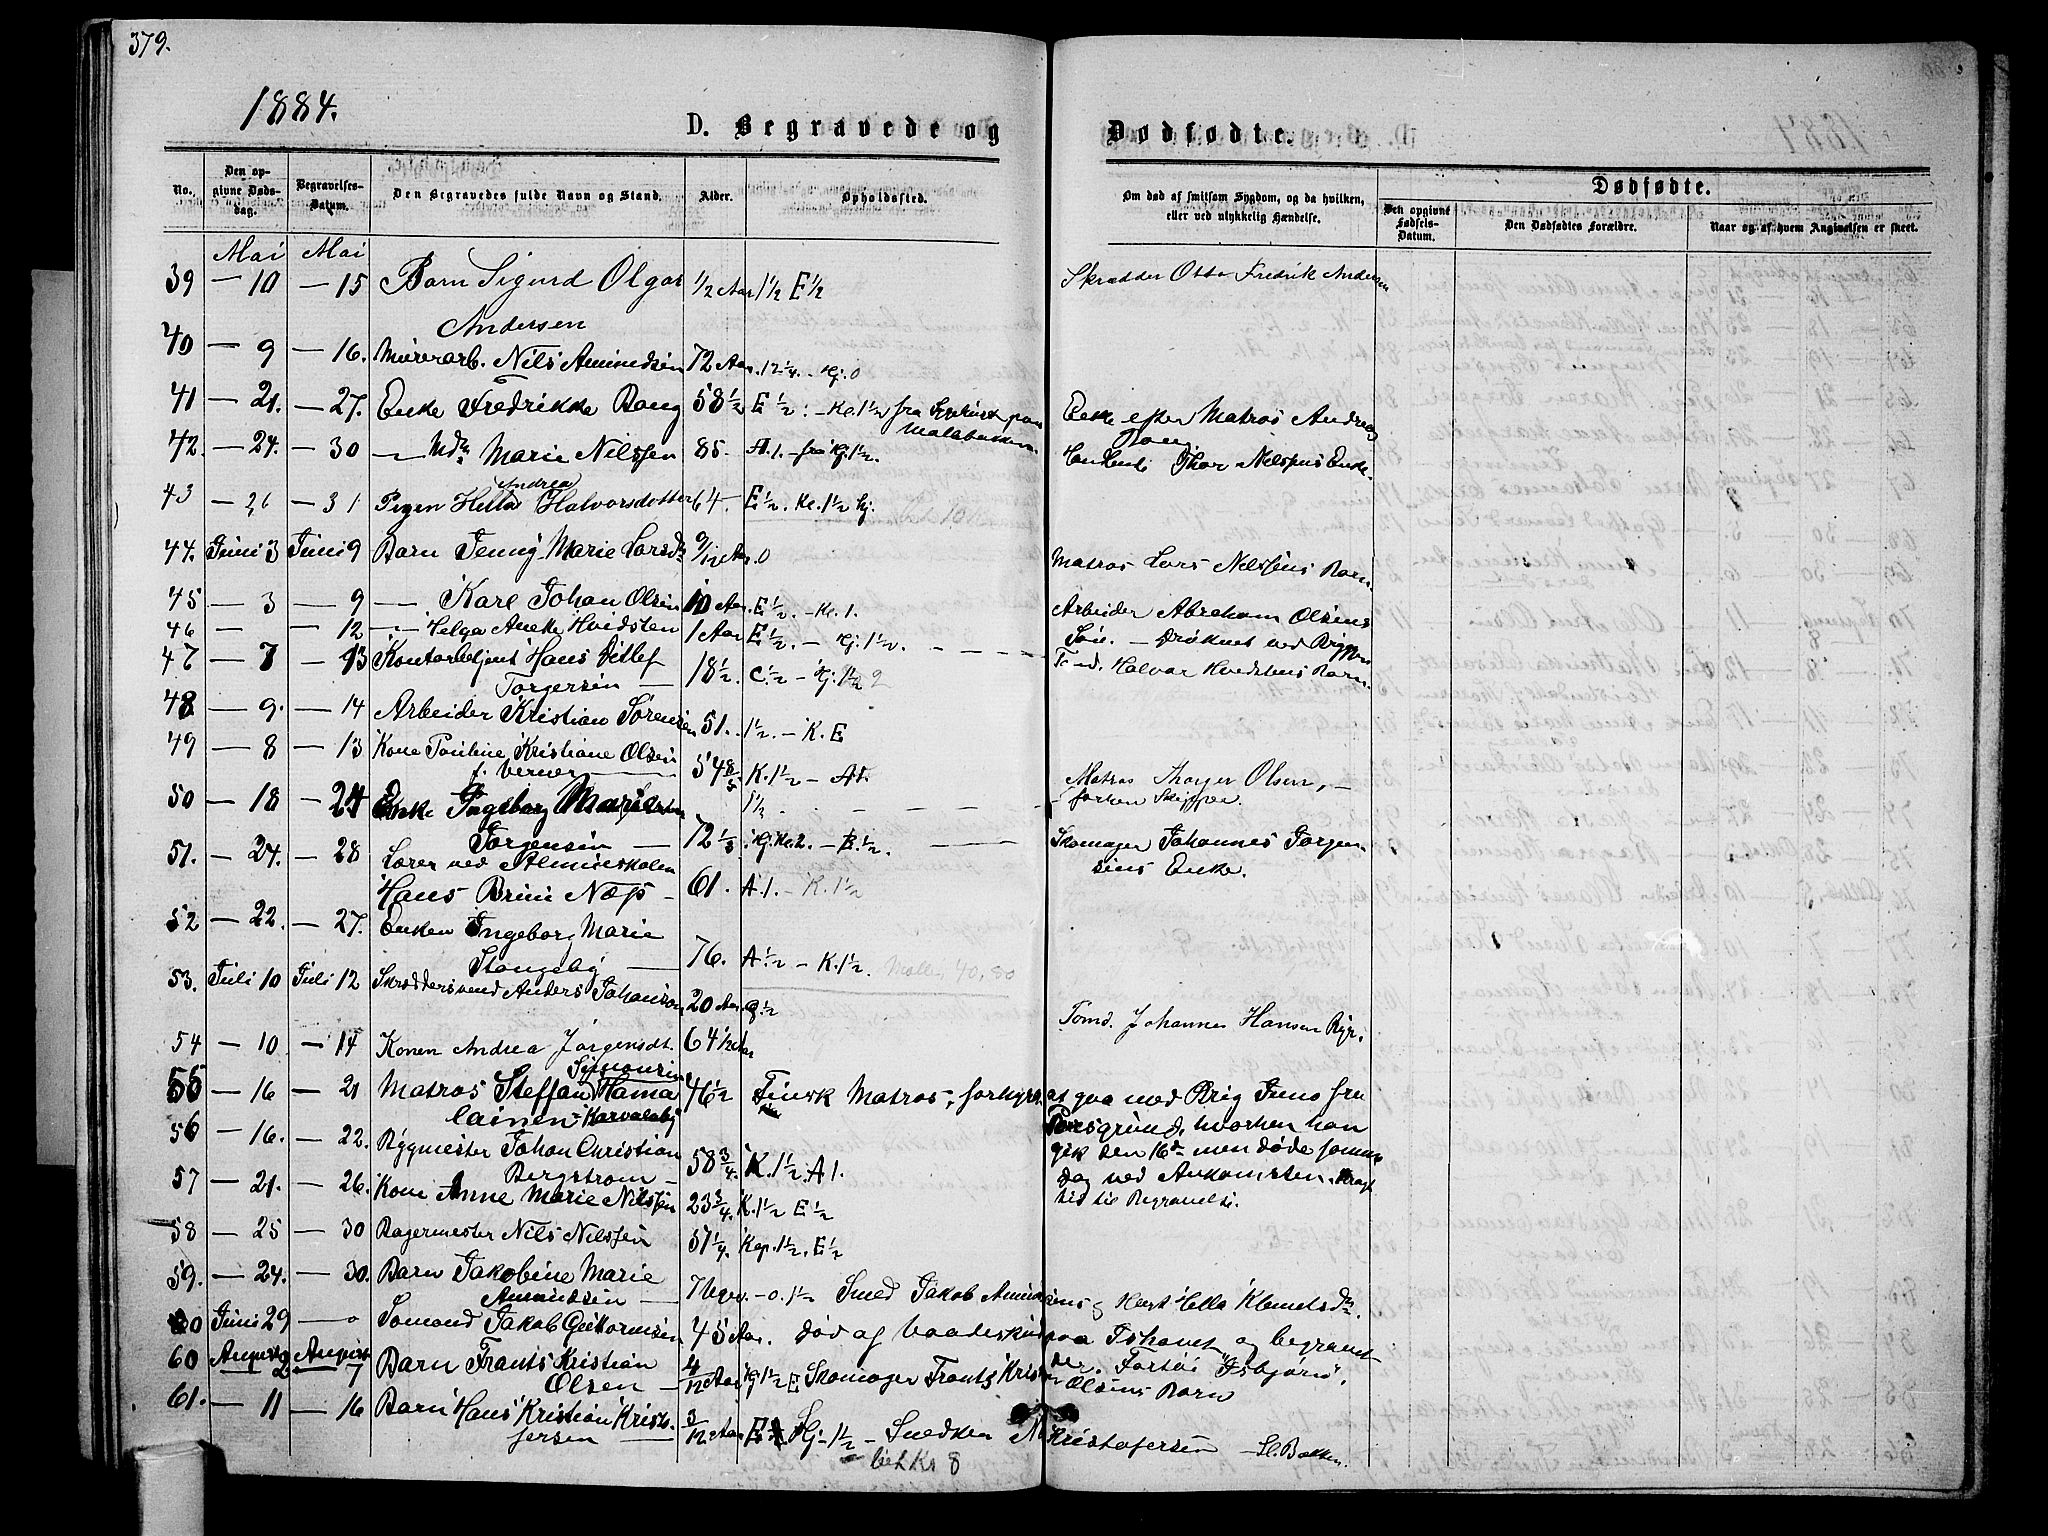 379.
1884.
D. Begravede og Dødfødte.
No.
Den opgivne Dødsdag.
Begravelses-Datum.
Den Begravedes fulde Navn og Stand.
Alder.
Opholdssted.
Om død af smitsom Sygdom, og da hvilken, eller ved ulykkelig Hændelse.
Dødfødte.
Den opgivne Fødsels-Datum.
Den Dødfødtes Forældre.
Naar og af hvem Angivelsen er skeet.
Mai Mai
39 — 10 — 15 Barn Sigurd Olgar 1/2 Aar 1 1/2 E 1/2 Skrædder Otto Fredrik Andersen
Andersen
40 — 9 — 16. Murerarb. Nils Amundsen 72 Aar. 12 1/4 - Kj. 0
41 — 21. — 27. Enke Fredrikke Bang 58 1/2 E 1/2 : - Ke. 1 1/2 fra Enke efter Matros Andreas
Bang
42. — 24. — 30 — Mdm. Marie Nilssen 85. A. 1. - fra Kj. 1 1/2. Thor Nilssens Enke.
Andrea
43 — 26 — 31 Pigen Hella Halvorsdotter 64 - E 1/2. Ke. 1 1/2 Kj.
44. Juni 3 Juni 9 Barn Jenny Marie Larsdr. 9/12 Aar. 0 Matros Lars Nilssens Barn
45 — 3 — 9 — Karl Johan Olsen 10 Aar. E 1/2. - Ke. 1. Arbeider Abraham Olsens
46 — — 12 — Helga Aneke Hvidsten 1 Aar E 1/2. - Kj. 1 1/2. Søn. - Druknet ved Bryggen
47 — 7 — 13 Kontorbetjent Hans Ditlef 18 1/2. C. 1/2 - Kj. 1 1/2 2 Tomd. Halvor Hvidstens Barn.
Torgersen
48 — 9. — 14 Arbeider Kristian Sørensen 51. 1 1/2. - K. E
49 — 8 — 13 Kone Pauline Kristiane Olsen 54 8/5 K. 1 1/2 - A1. Matros Thorger Olsen,
f. Verner forhen Skipper.
50 — 18 — 24 Enke Ingeborg Marie 1 1/2
Jørgensen — 72 1/3 Kj. Ke. 2. - E. 1/2. Skomager Johannes Jørgensens Enke.
51. — 24. — 28 Lærer ved Almueskolen
Hans Bruu Næss - 61. A. 1. - K. 1 1/2
52 — 22. — 27. Enken Ingeborg Marie
Slangeby — 76. A. 1/2 - K. 1 1/2. 40,80
53. Juli 10 Juli 12 Skræddersvend Anders Johanson 20 Aar. G. 1/2
54 — 10 — 14 Konen Andrea Jørgensdt. 64 1/2 Aar Tomd. Johannes Hansen
Simonsen
55 — 16 — 21 Matros Steffan Hama 46 1/2 Finsk Matros, forhyret at gaa med Brig Juno fra
lainen - Karvalaby Porsgrund, hvorhen han
56 — 16. — 22. Rygmester Johan Christian gik den 16d. men døde samme
Bergstrøm - 58 3/4. K. 1 1/2 A 1. Dag ved Ankomsten. Bragt
57 — 21. — 26. Kone Anne Marie Nilssen 23 3/4. K. 1 1/2 E 1/2 hid til Begravelse.
58 — 25 — 30 Bagermester Nils Nilssen 57 1/4. Kap. 1 1/2. E 1/2
59. — 24. — 30. Barn Jakobine Marie
Amundsen — 7 Uger. - 0. 1 1/2 Smed Jakob Amundsens og Hust Hella Klemetsdr.
60 Juni 29 — o Somand Jakob Guttormsen 45 Aar. død af Vaadeskud paa Ishavet og begravet
60 August 2 August 7 Barn Frants Kristian 4/12 Aar Kj. 1 1/2 E Skomager Frants Kristian Olsens Barn
der. Fartøi "Isbjørn".
Olsen
61. — 11 — 16 Barn Hans Kristian Kristofersen — 3/12 Aar E Kj - 1 1/2 - Snedker M Kristofersen - Sl. Bakken.
bet. Kr 8